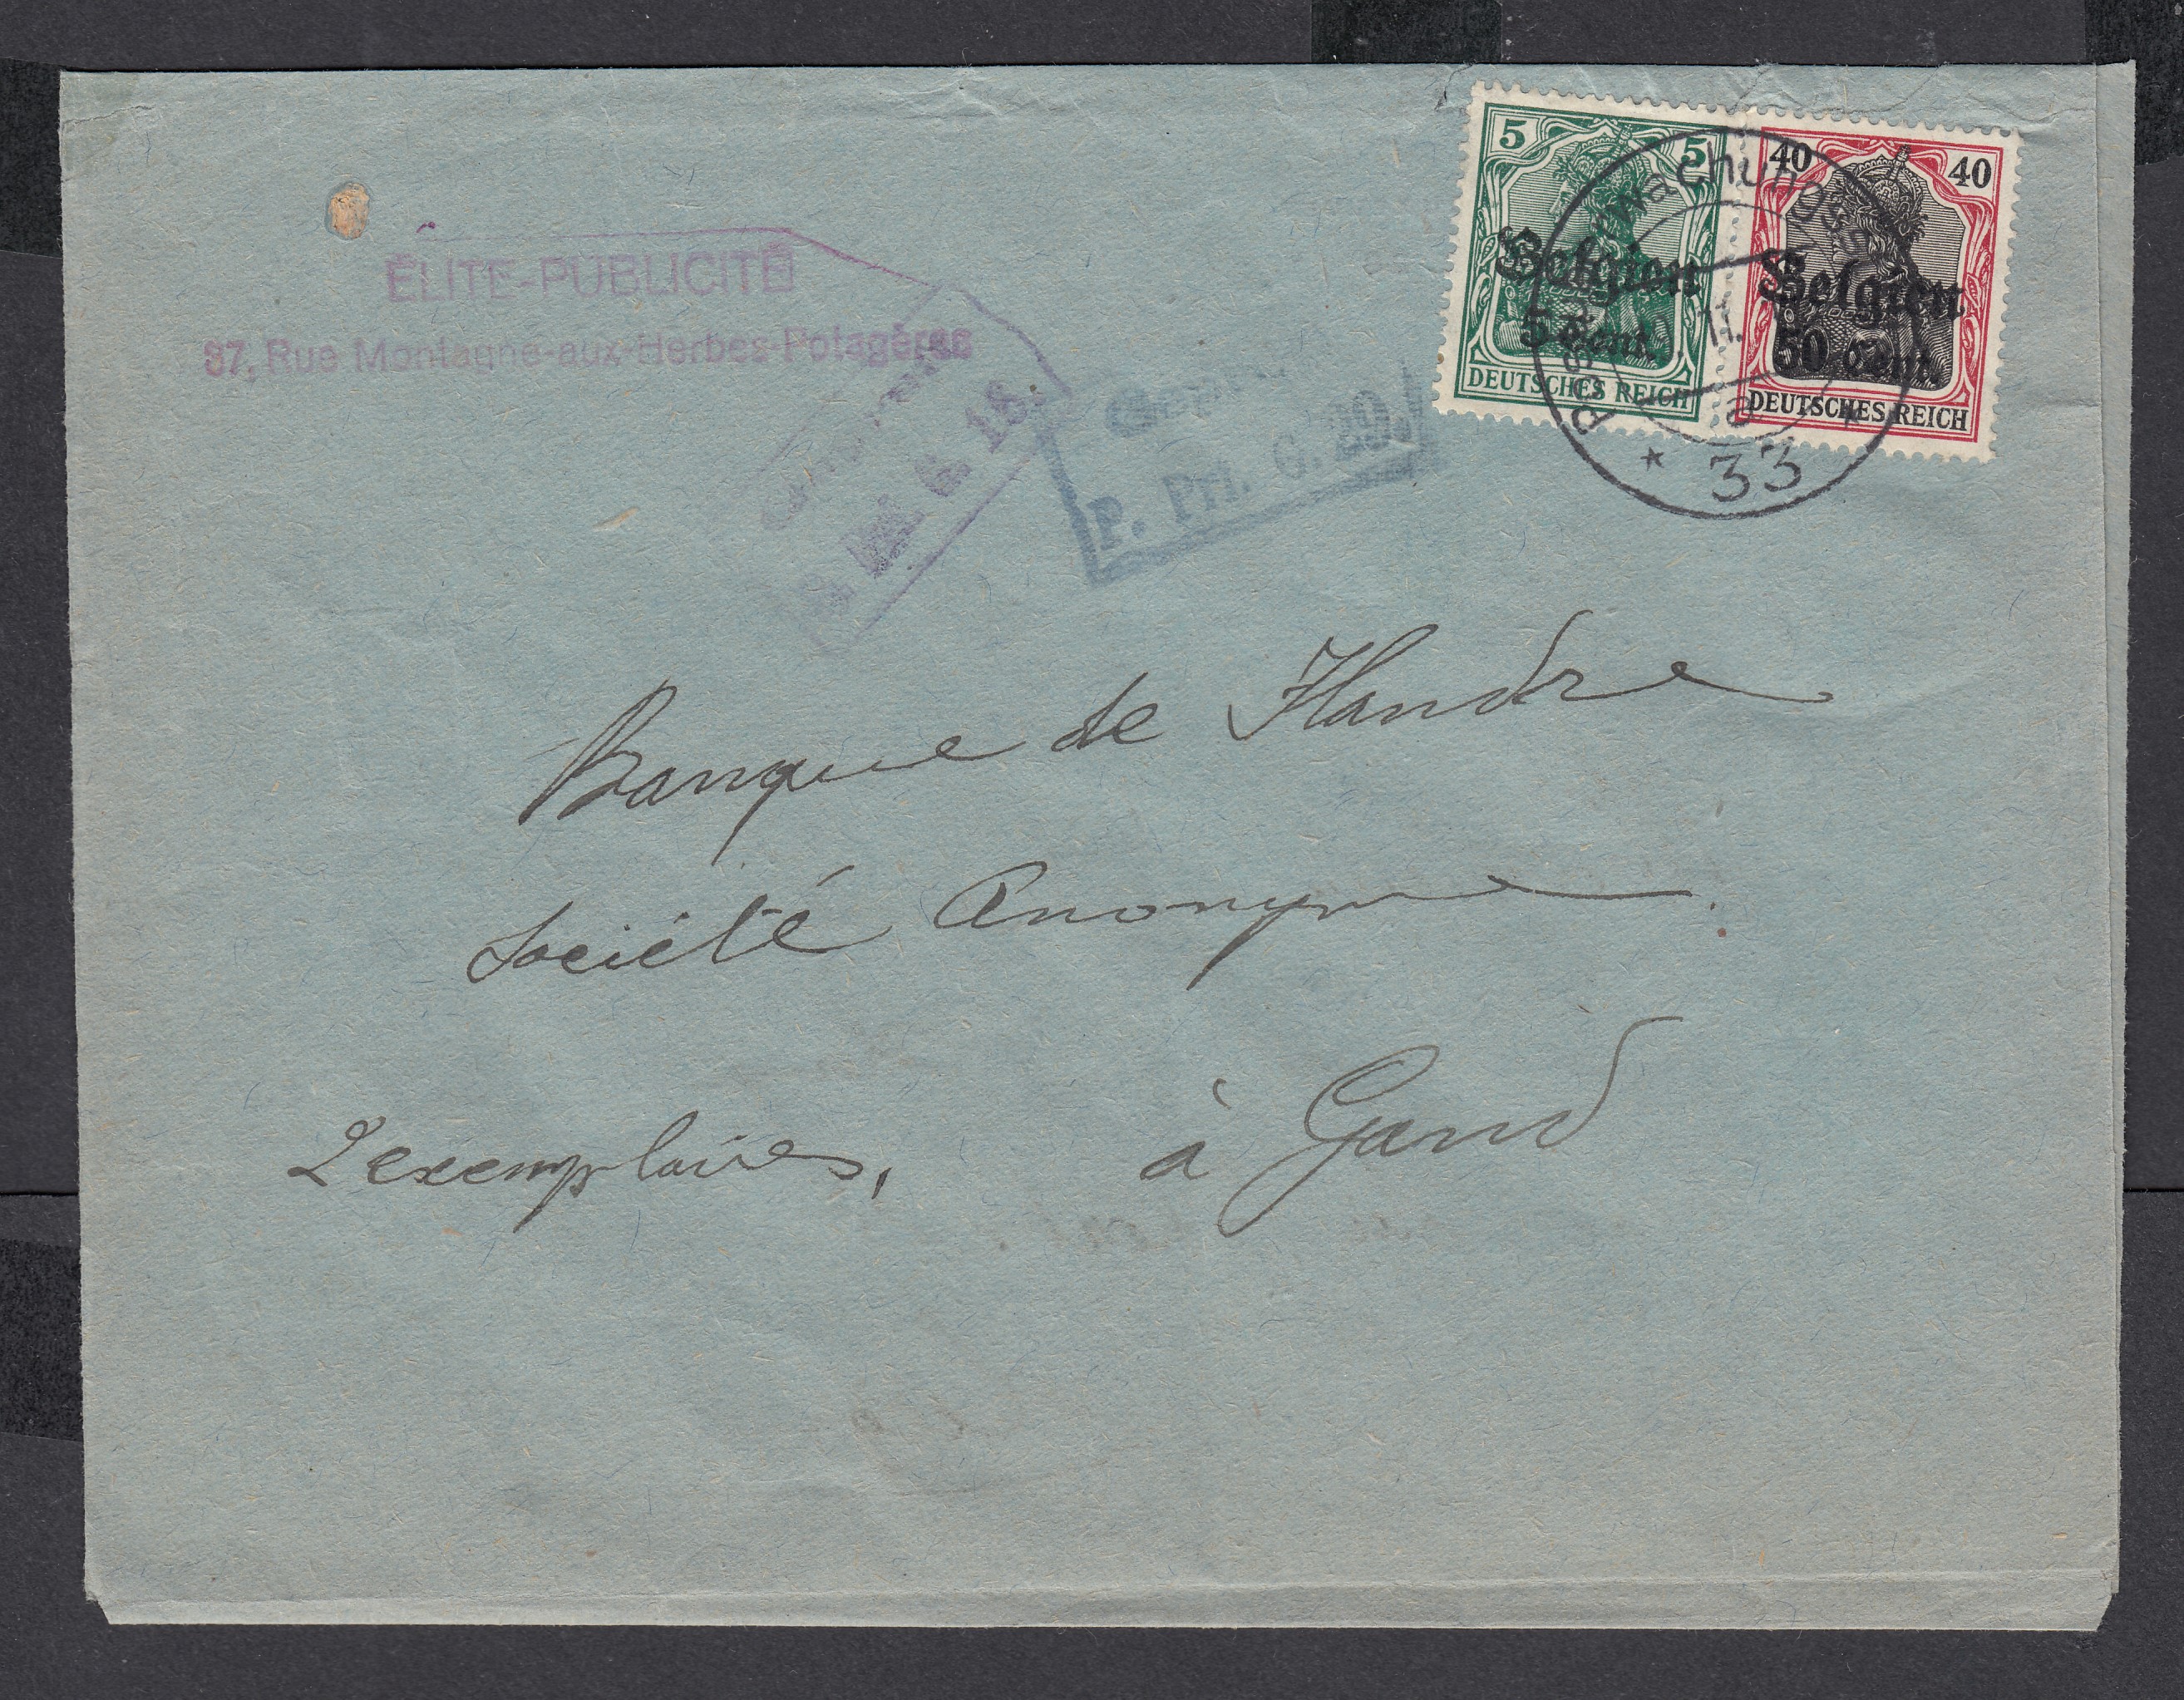 ÉLITE-PUBLICITÉ
87, Rue Montagne-aux-Herbes-Potagères
M G 18.
P. Prf. G. 29.
5 5
Belgien
5 Cent.
DEUTSCHES REICH
40 40
Belgien
50 Cent.
DEUTSCHES REICH
11.
* 33 *
Banque de Flandre
Société Anonyme.
2 exemplaires, à Gand